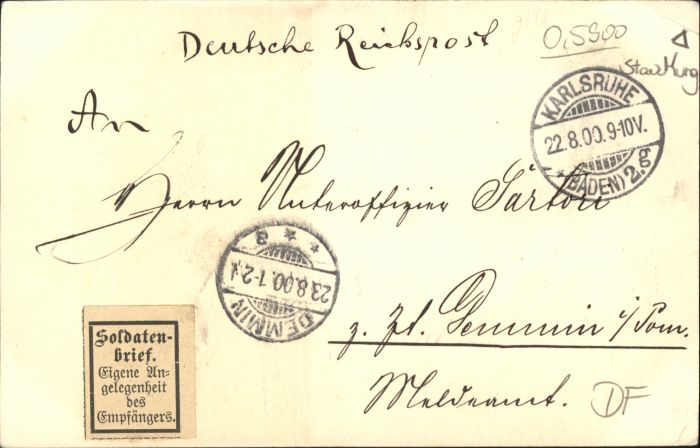 Deutsche Reichspost
0,5900
An
KARLSRUHE
22.8.00.9-10V.
* (BADEN) 2.
Herrn Unteroffizier Sartori
DEMMIN
23.8.00.1-2
* * a
z. Zt. Demmin i/Pom.
Meldeamt.
DF
Soldaten-
brief.
Eigene An-
gelegenheit
des
Empfängers.